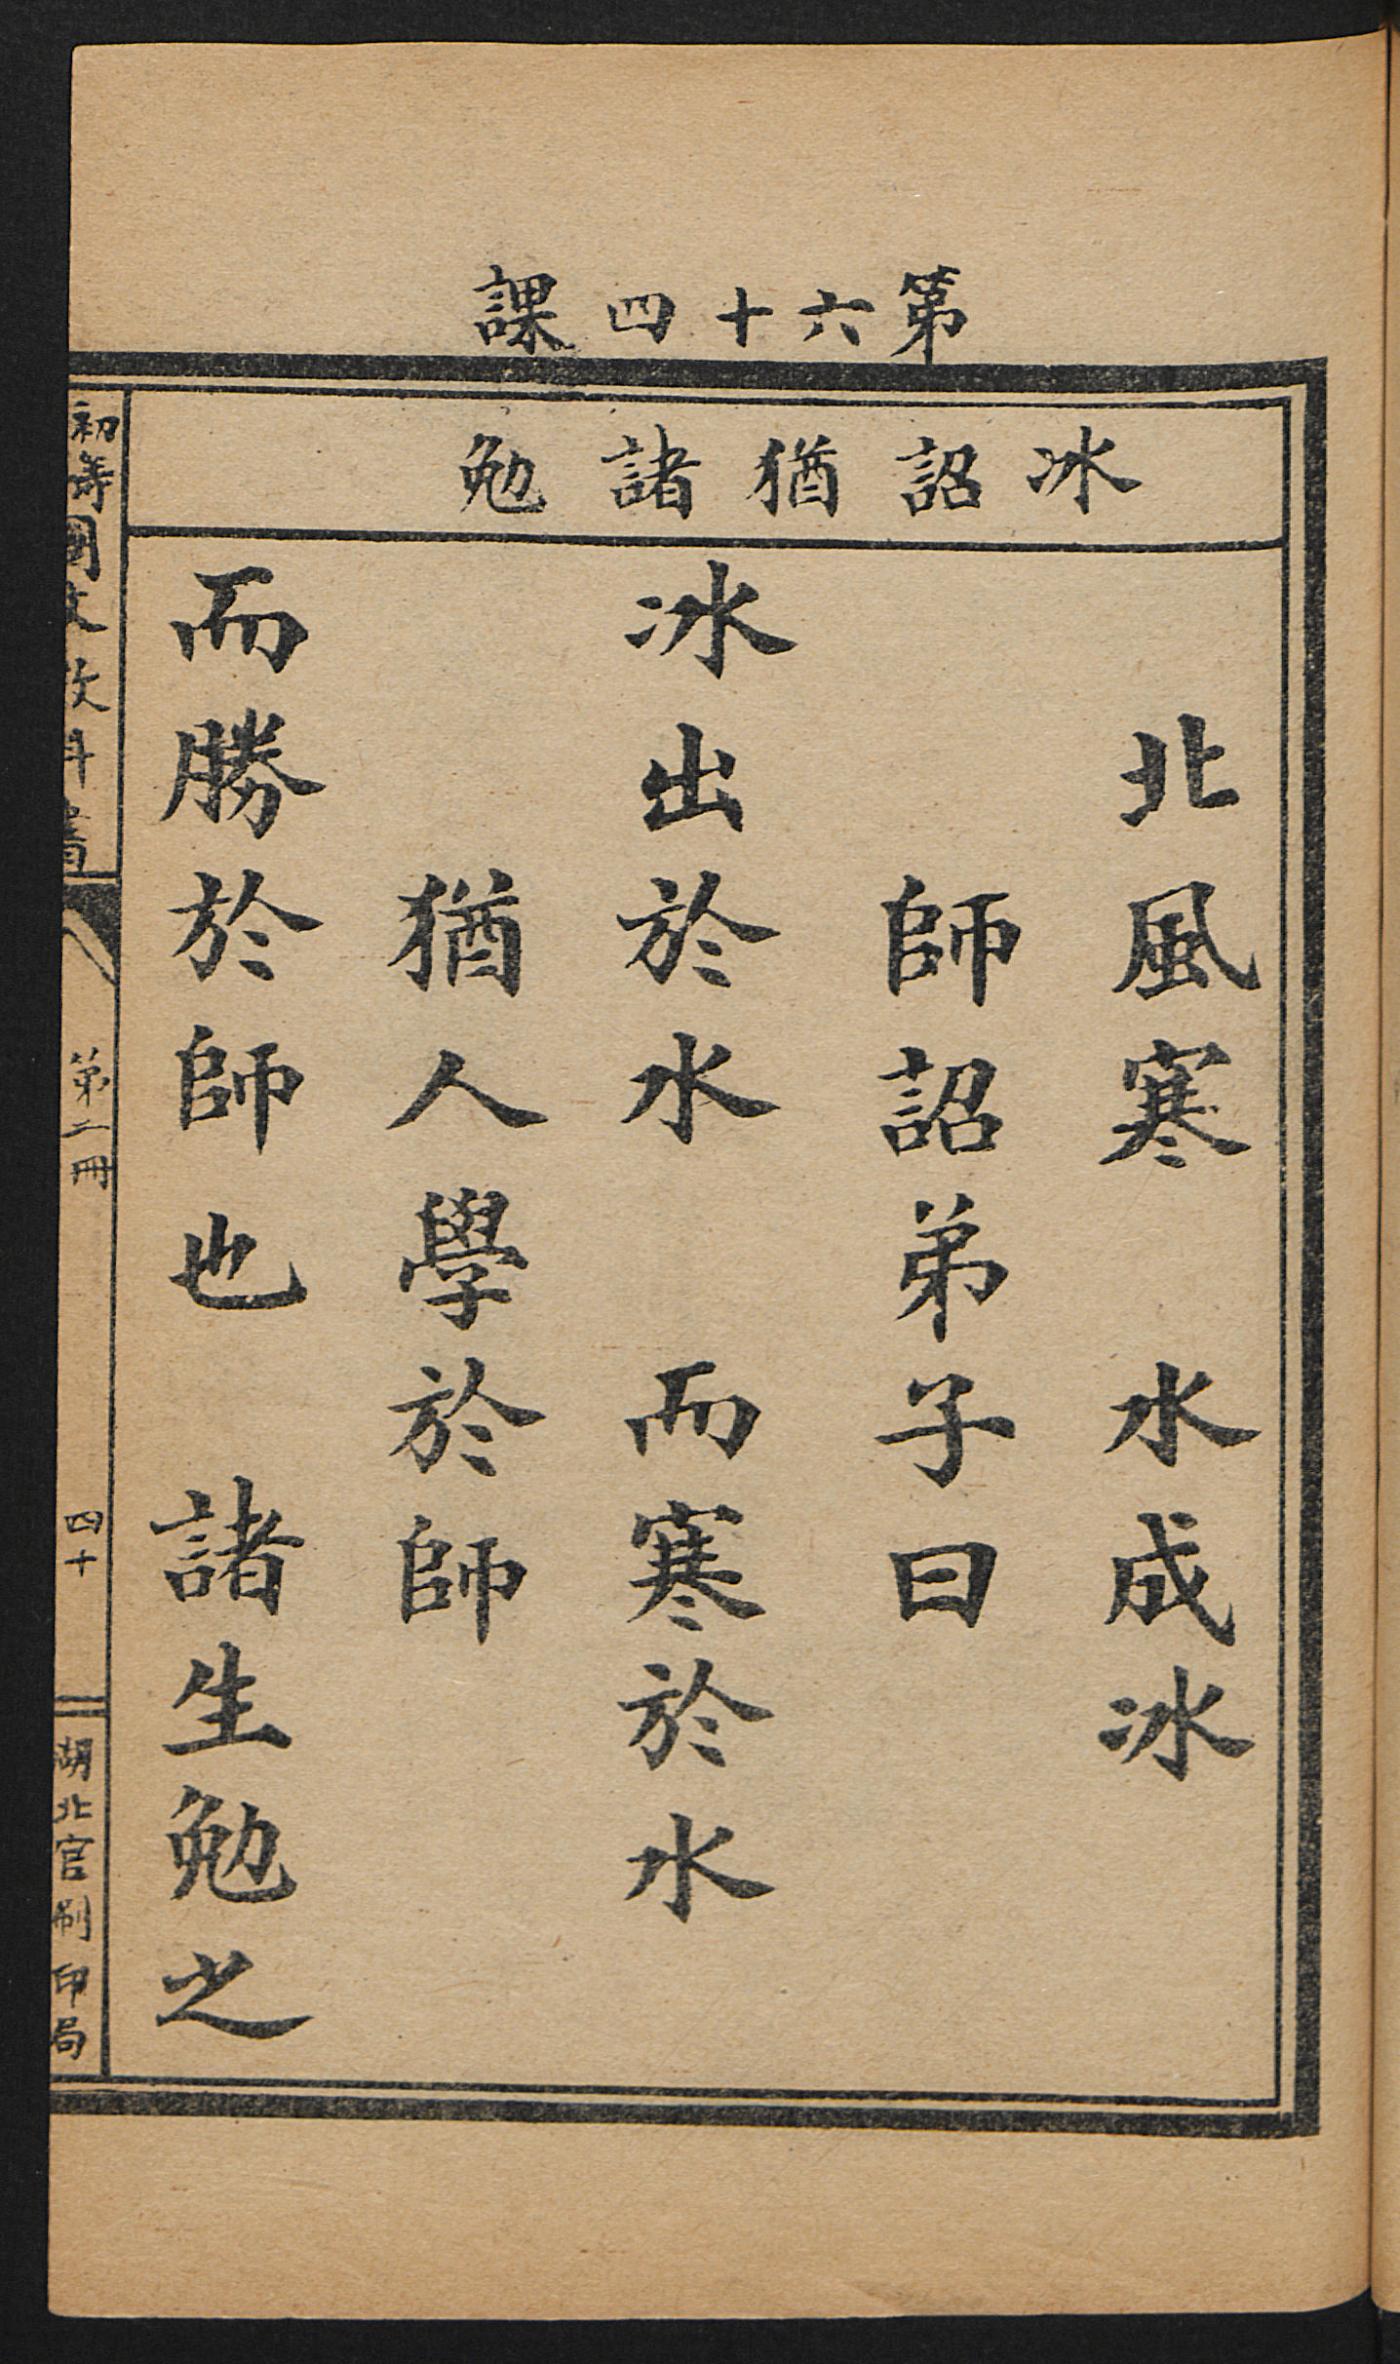 第六十四課
冰詔猶諸勉
北風寒　水成冰
師詔弟子曰
冰出於水　而寒於水
猶人學於師
而勝於師也　諸生勉之
初等國文教科書
第二冊
四十
湖北官刷印局